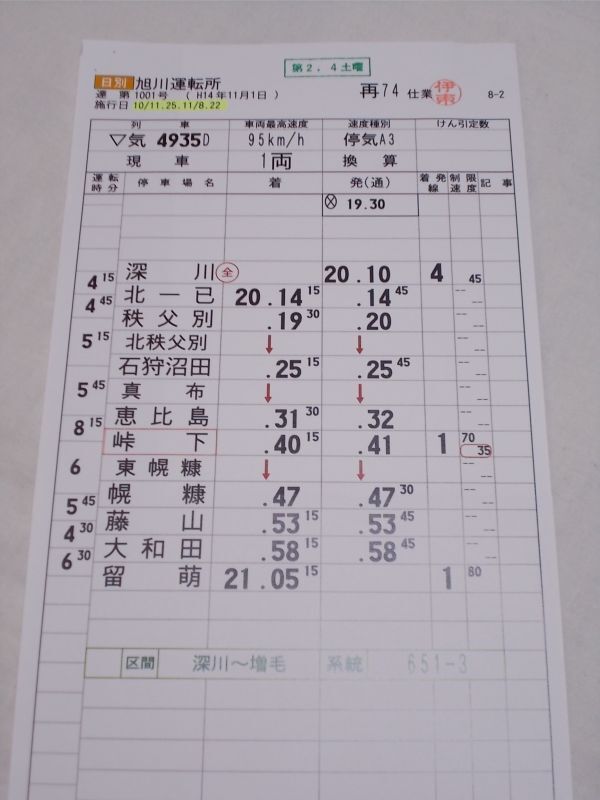 第2．4土曜
日別 旭川運転所
達 第1001号 （ H14年11月1日 ） 再74 仕業 伊東 8-2
施行日 10/11.25.11/8.22
列 車 車両最高速度 速度種別 けん引定数
▽気 4935D 95km/h 停気A3
現 車 1両 換 算
運転時分 停車場名 着 発(通) 着発線 制限速度 記事
⊗ 19.30
深川 全 20.10 4 45
4 15
北一已 20.14 15 .14 45
4 45
秩父別 .19 30 .20
北秩父別 ↓ ↓
5 15
石狩沼田 .25 15 .25 45
真布 ↓ ↓
5 45
恵比島 .31 30 .32
8 15
峠下 .40 15 .41 1 70 35
東幌糠 ↓ ↓
6
幌糠 .47 .47 30
5 45
藤山 .53 15 .53 45
4 30
大和田 .58 15 .58 45
6 30
留萌 21.05 15 1 80
区間 深川～増毛 系統 651-3